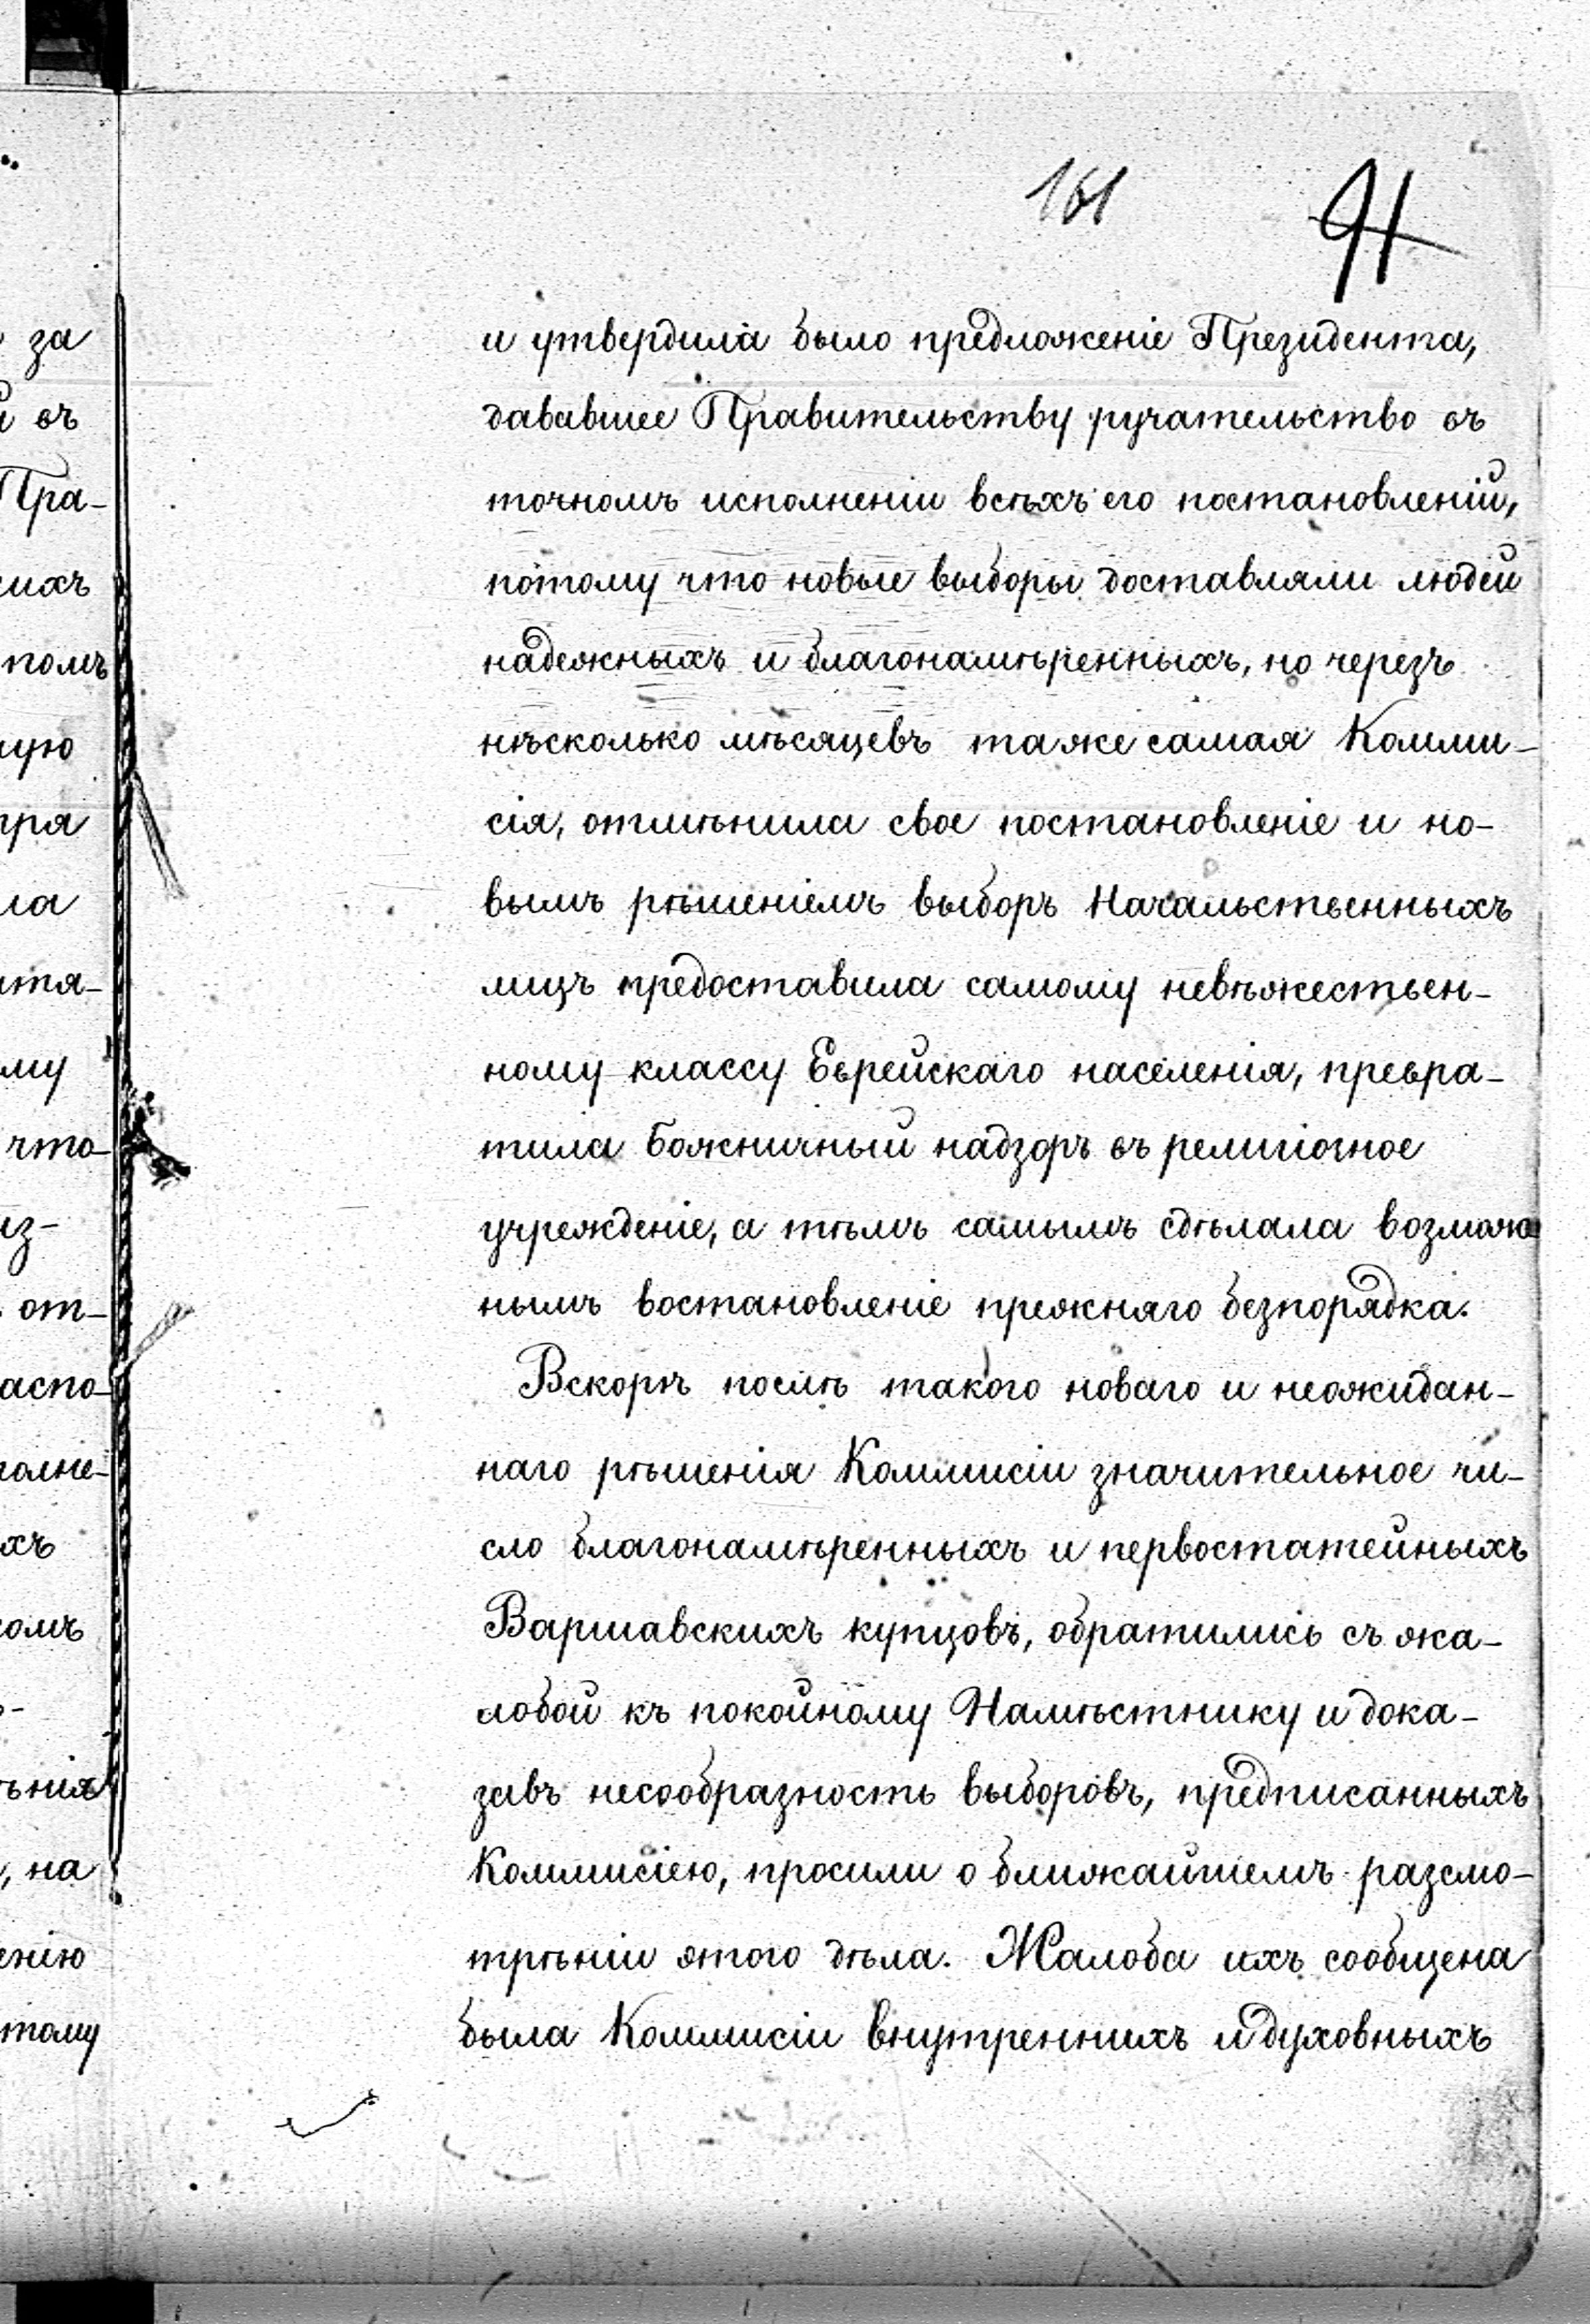 161 91
и утвердила было предложеніе Президента,
дававшее Правительству ручательство въ
точномъ исполненіи всѣхъ его постановленій,
потому что новые выборы доставляли людей
надежныхъ и благонамѣренныхъ, но черезъ
нѣсколько мѣсяцевъ таже самая Комми-
сія, отмѣнила свое постановленіе и но-
вымъ рѣшеніемъ выборъ Начальственныхъ
лицъ предоставила самому невѣжествен-
ному классу Еврейскаго населенія, превра-
тила Божничный надзоръ въ религіозное
учрежденіе, а тѣмъ самымъ сдѣлала возмож
нымъ востановленіе прежняго безпорядка.
Вскорѣ послѣ такого новаго и неожидан-
наго рѣшенія Коммисіи значительное чи-
сло благонамѣренныхъ и первостатейныхъ
Варшавскихъ купцовъ, обратились съ жа-
лобой къ покойному Намѣстнику и дока-
завъ несообразность выборовъ, предписанныхъ
Коммисіею, просили о ближайшемъ разсмо-
трѣніи этого дѣла. Жалоба ихъ сообщена
была Коммисіи внутреннихъ и духовныхъ
за
въ
Пра-
ихъ
помъ
ую
ря
ла
тя-
му
что
из-
от-
аспо-
полне-
хъ
комъ
ѣнія
, на
енію
тому